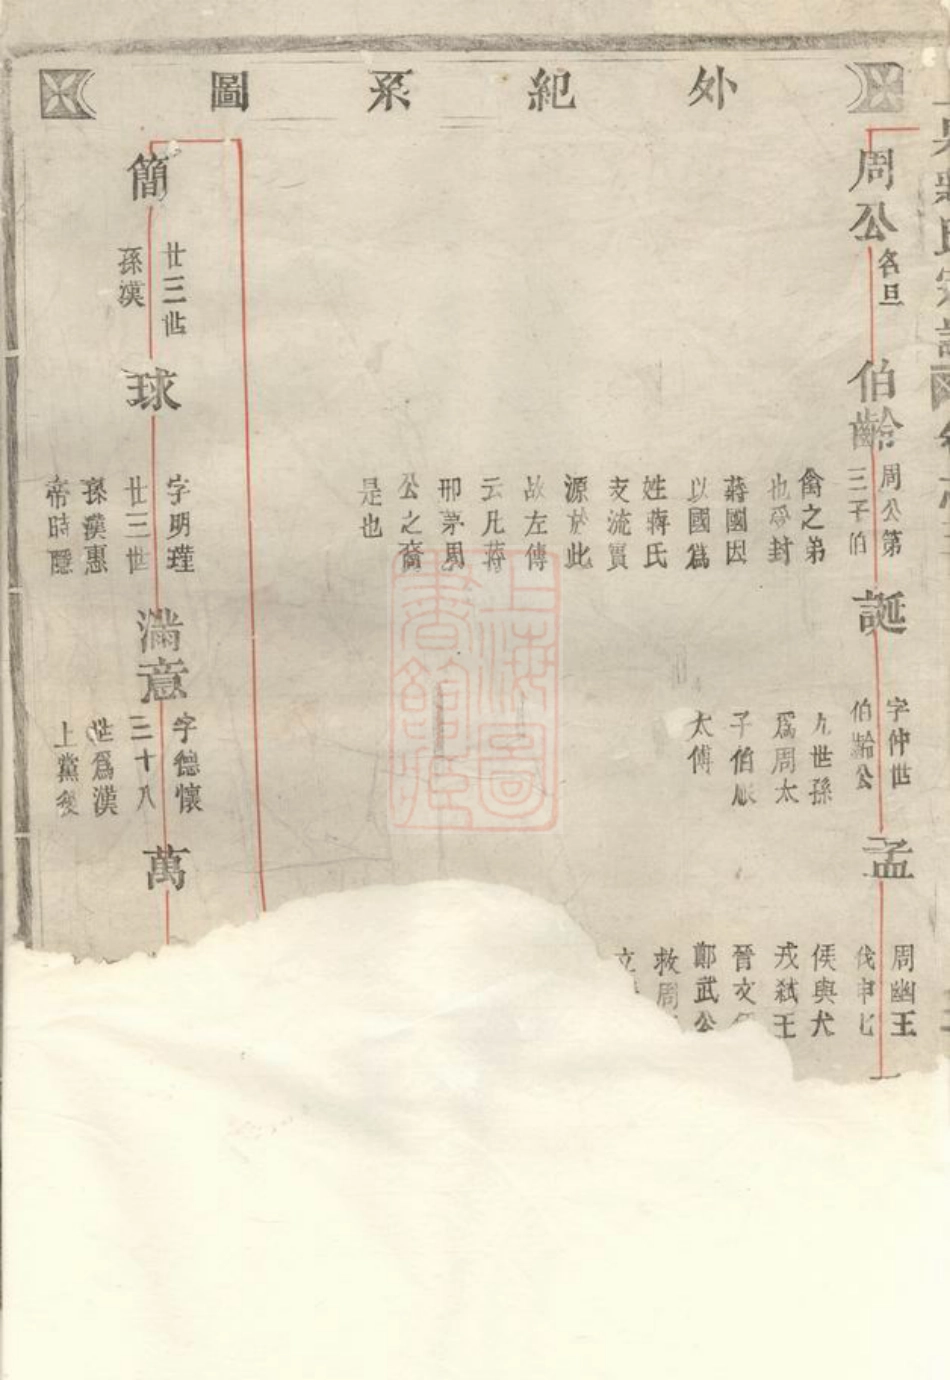 外紀系圖
周公
名旦
伯齡
周公第
三子伯
禽之弟
也爭封
蔣國因
以國為
姓蔣氏
支流實
源於此
故左傳
云凡蔣
邢茅周
公之裔
是也
誕
字仲世
伯齡公
九世孫
爲周太
子伯服
太傅
孟
周幽王
伐申匕
侯與犬
戎弑王
晉文
鄭武公
救周
立
簡
廿三世
孫漢
球
字明瑾
廿三世
孫漢惠
帝時隱
滿意
字德懷
三十八
世爲漢
上黨後
萬
上海圖書館藏